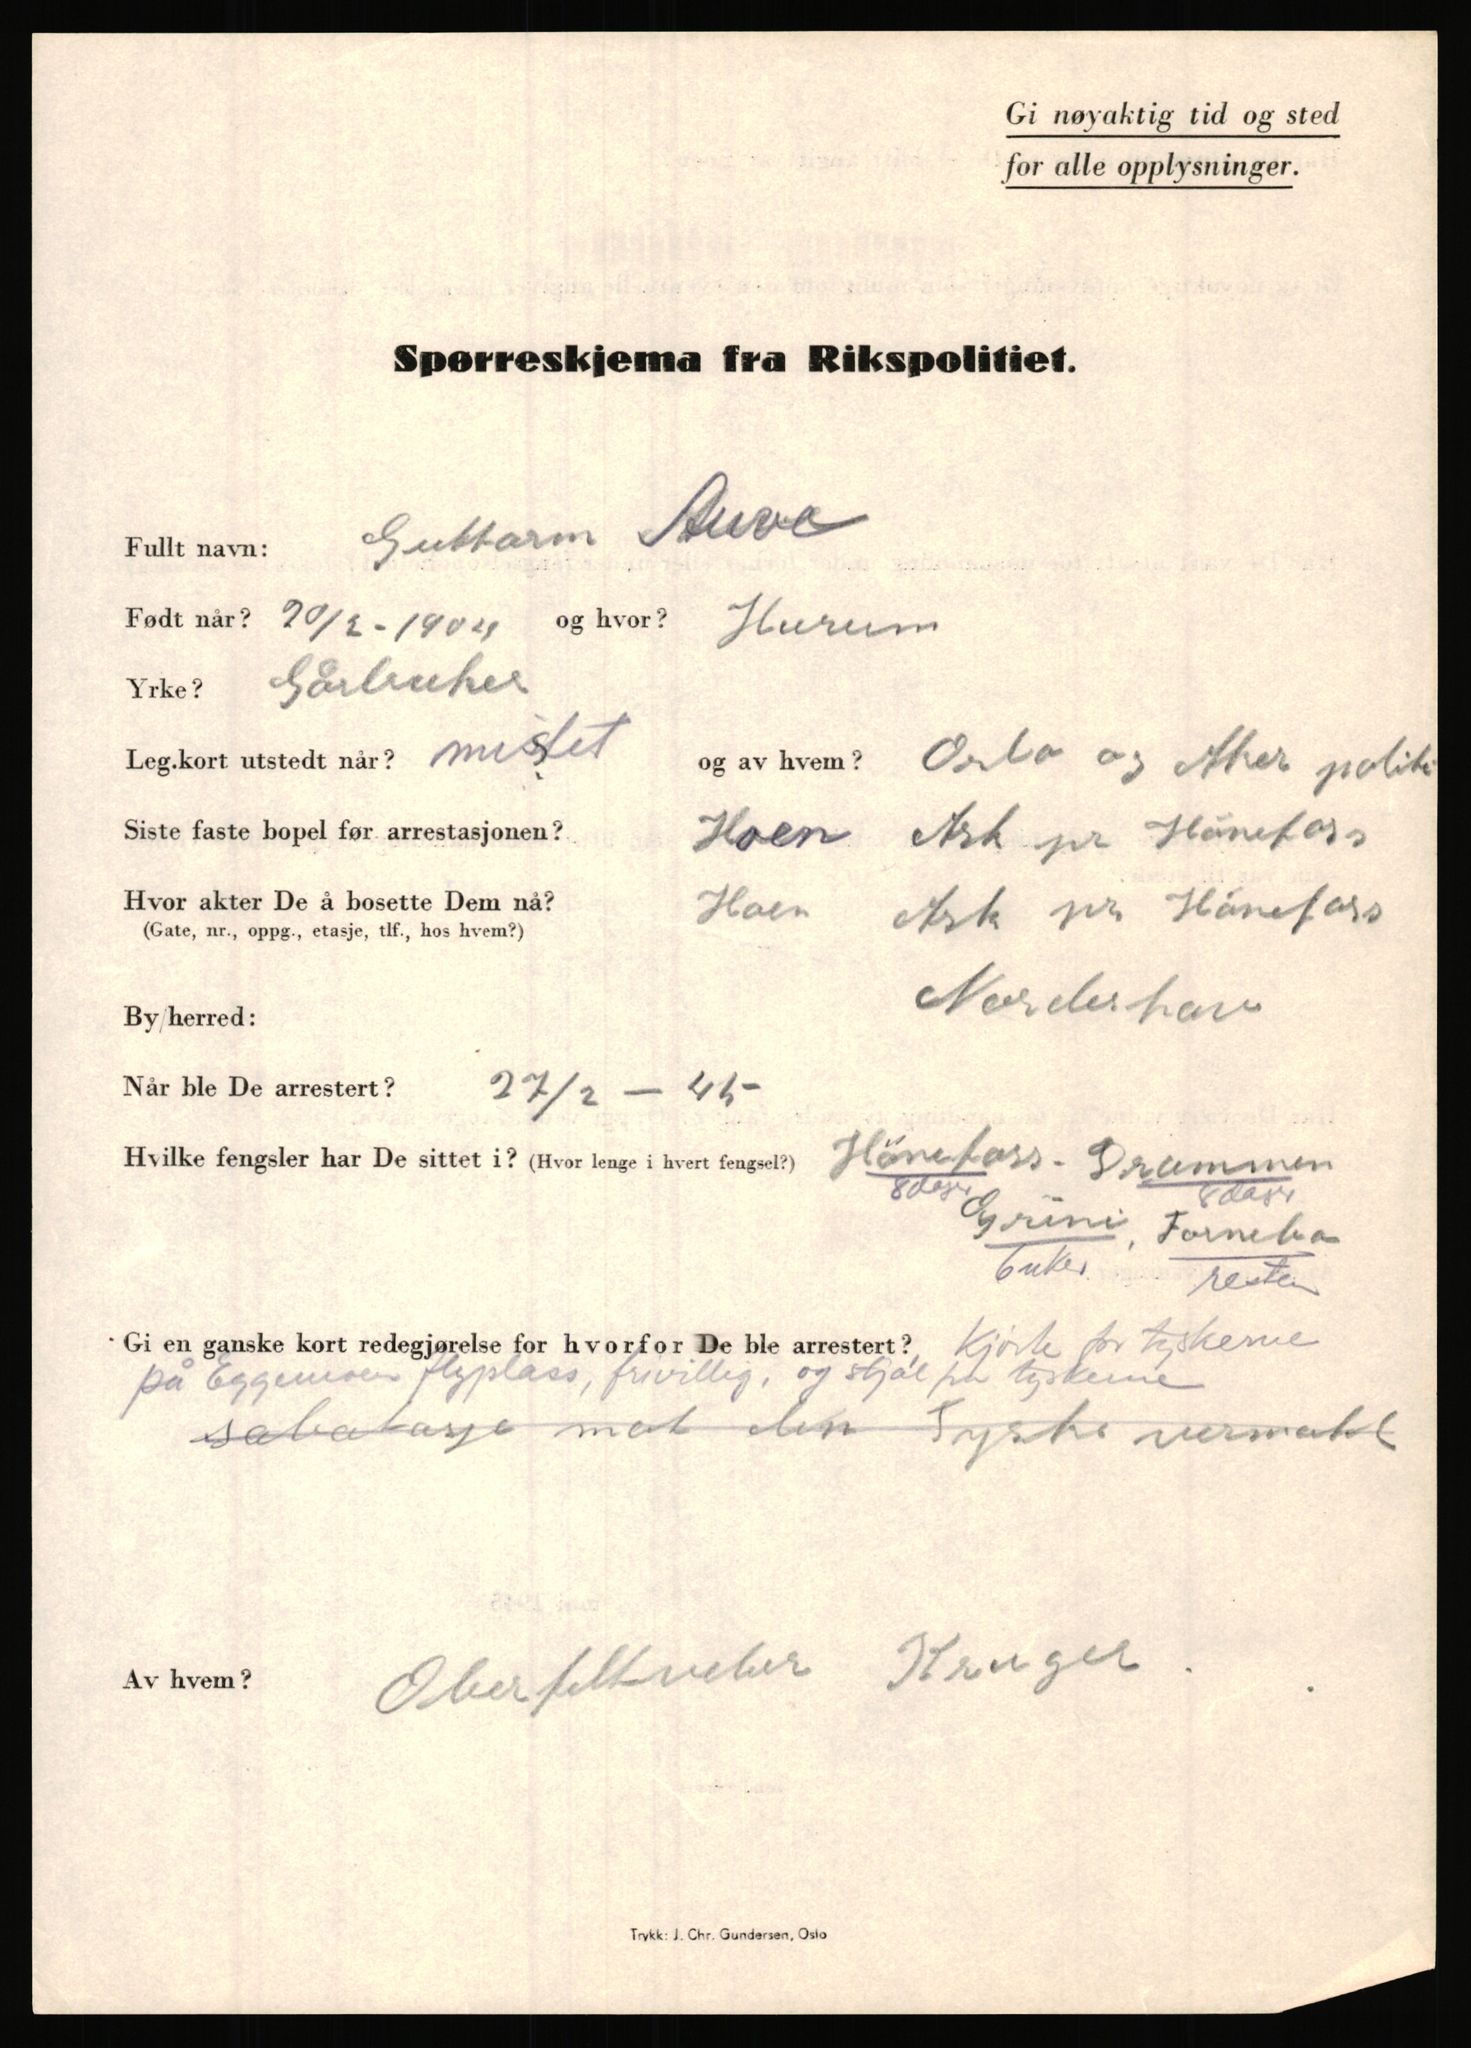 Gi nøyaktig tid og sted
for alle opplysninger.
Spørreskjema fra Rikspolitiet.
Fullt navn: Guttorm Auve
Født når? 20/2-1904 og hvor? Hurum
Yrke? Gårbruker
Leg.kort utstedt når? mistet og av hvem? Oslo og Aker politi
Siste faste bopel før arrestasjonen? Hoen Ask pr Hönefoss
Hvor akter De å bosette Dem nå? Hoen Ask pr Hönefoss
(Gate, nr., oppg., etasje, tlf., hos hvem?)
Norderhov
By/herred:
Når ble De arrestert? 27/2 - 45
Hvilke fengsler har De sittet i? (Hvor lenge i hvert fengsel?) Hönefoss - Drammen
8 dager 8 dager
Grini, Fornebo
6 uker resten
Gi en ganske kort redegjørelse for hvorfor De ble arrestert? Kjörte for tyskerne
på Eggemoen flyplass, frivillig, og stjal fra tyskerne
sabotasje mot den Tyske vermakt
Av hvem? Oberfeltveber Kruger.
Trykk: J. Chr. Gundersen, Oslo